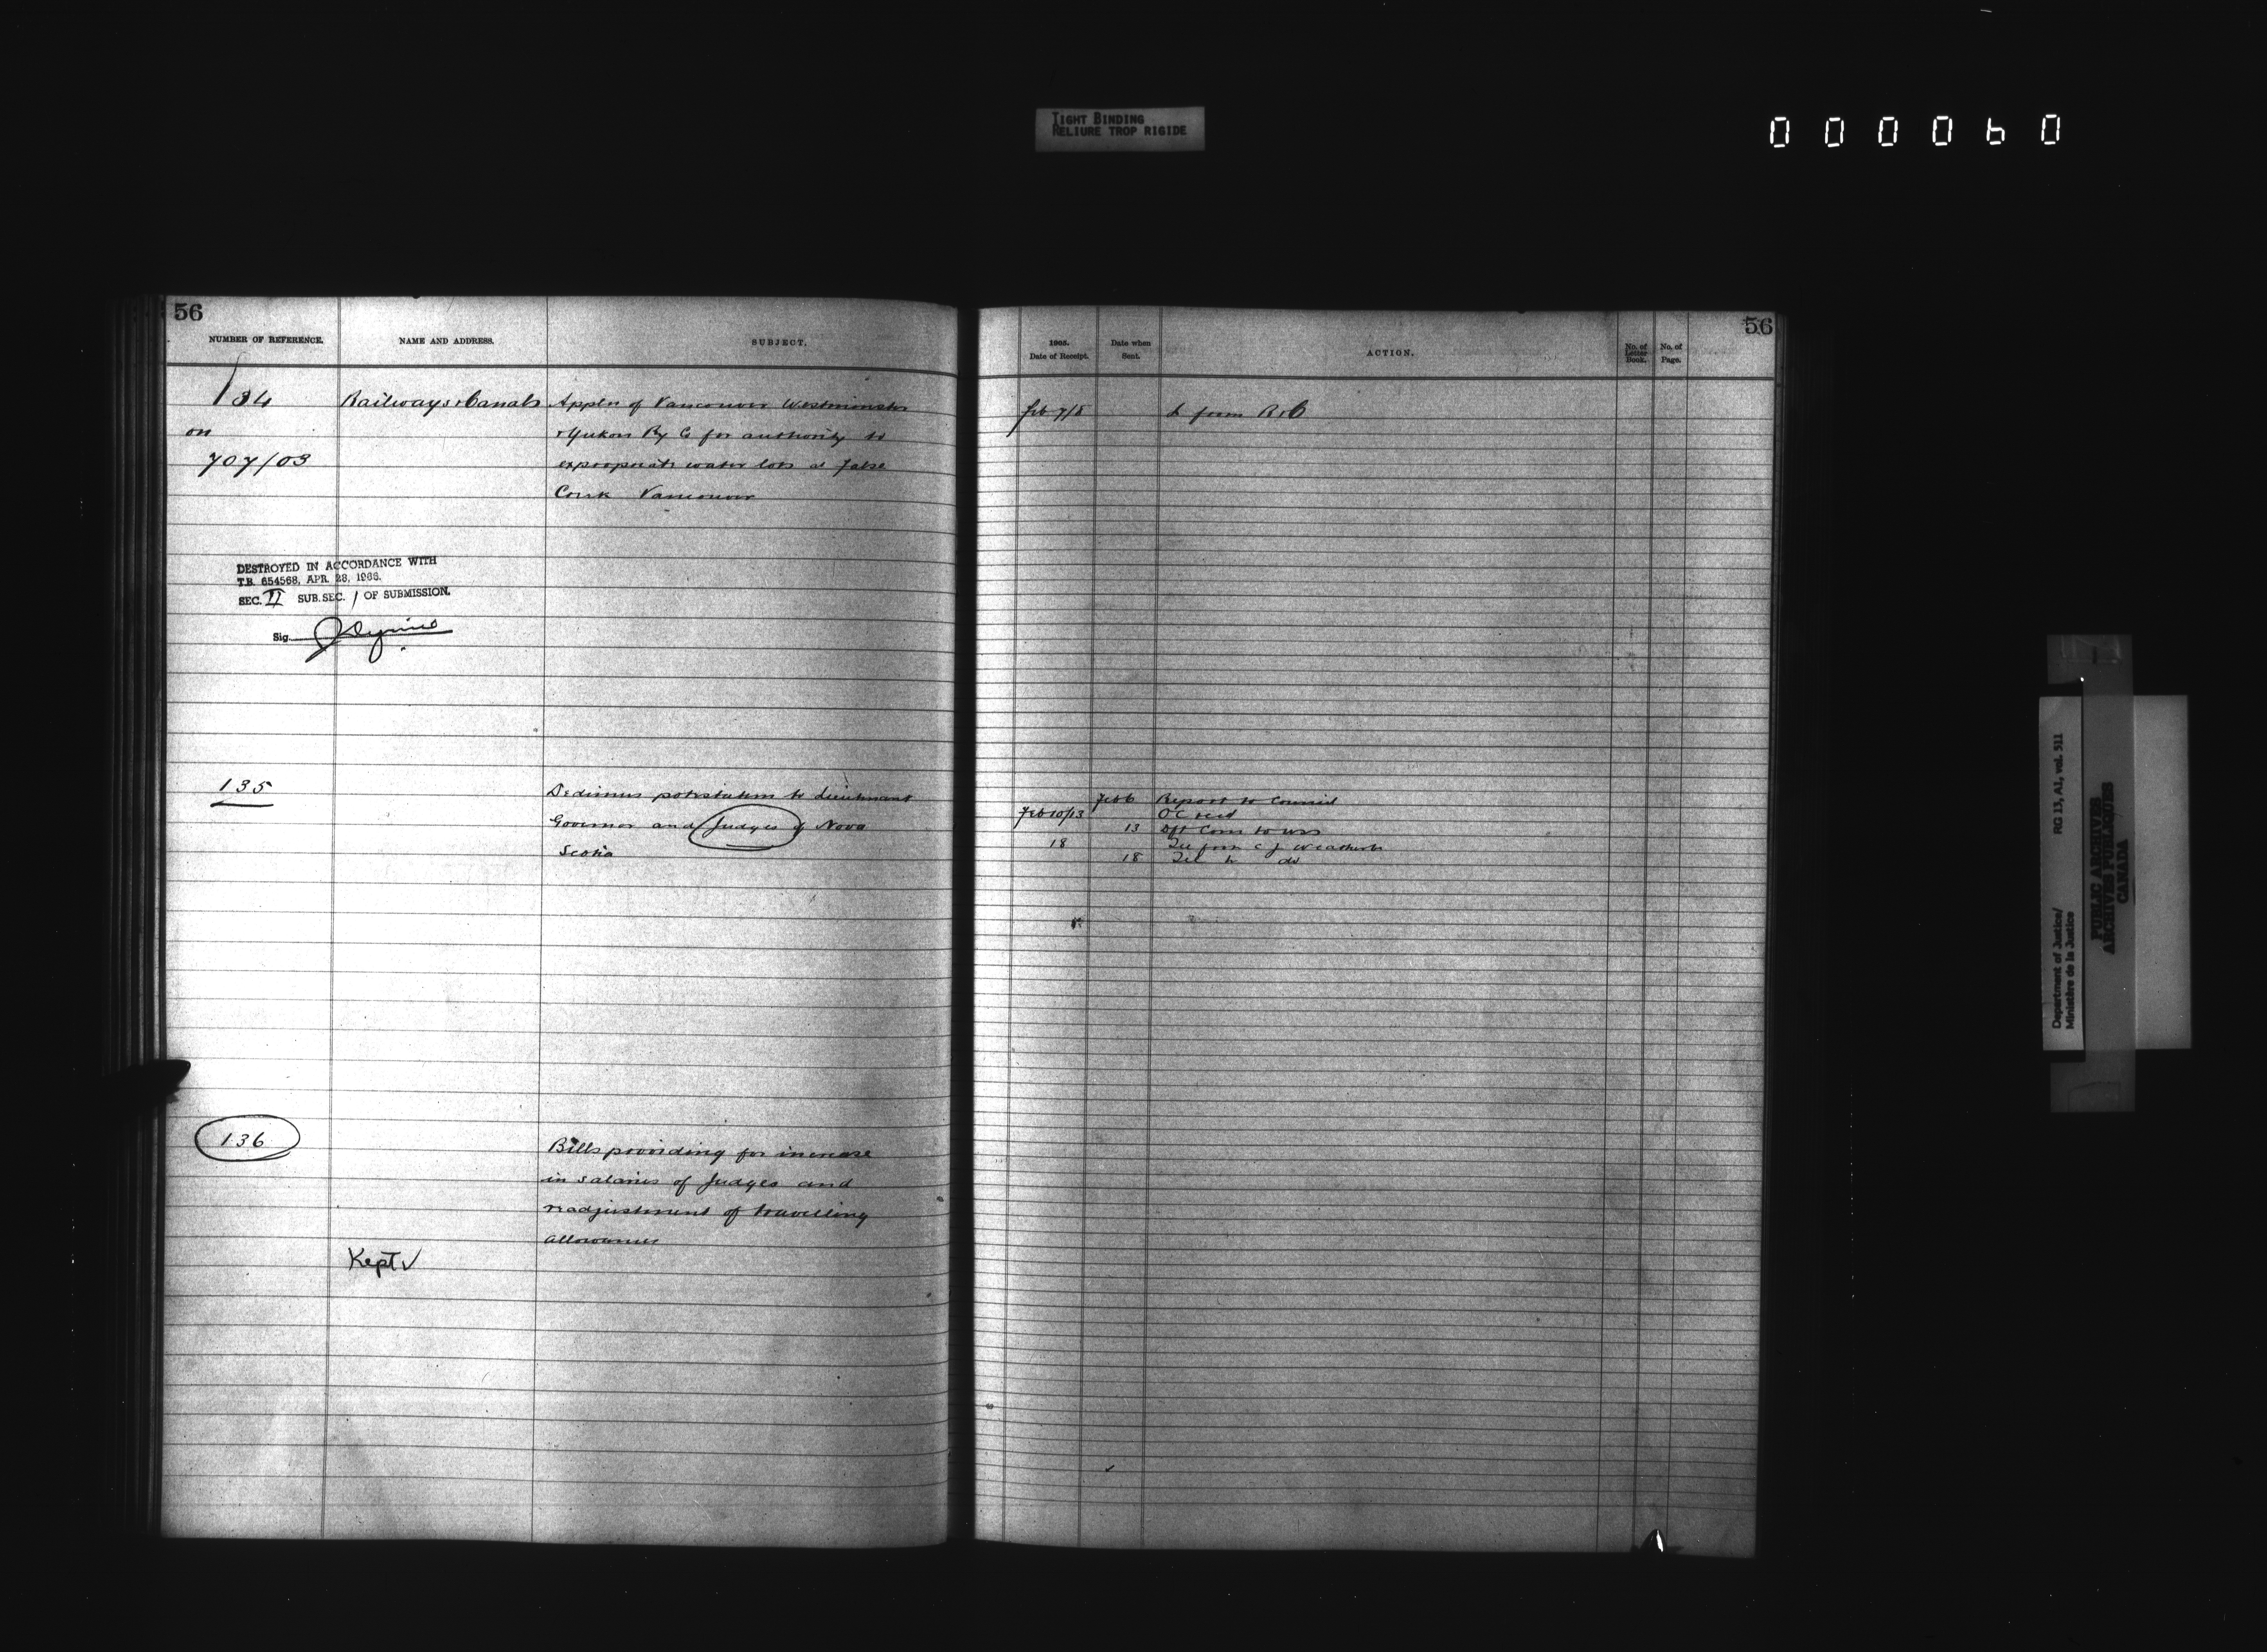 TIGHT BINDING
RELIURE TROP RIGIDE
000060
56
NUMBER OF REFERENCE.
NAME AND ADDRESS.
SUBJECT.
134
on
707/03
Railways & Canals
Appln of Vancouver Westminster
& Yukon Ry Co for authority to
expropriate water lots at False
Creek Vancouver
DESTROYED IN ACCORDANCE WITH
T.B. 654568, APR. 28, 1966.
SEC. II SUB.SEC. 1 OF SUBMISSION.
Sig.
135
Dedimus potestatem to Lieutenant
Governor and Judges of Nova
Scotia
136
Bills providing for increase
in salaries of Judges and
readjustment of travelling
allowances
Kept ✓
56
1905.
Date of Receipt.
Date when
Sent.
ACTION.
No. of
Letter
Book.
No. of
Page.
Feb 7/8 L from R & C
Feb 6 Report to Council
Feb 10/13 OC recd
13 Dft Com to
18 Tel from C J
18 Tel to do
Department of Justice/
Ministère de la Justice
RG 13, A1, vol. 511
PUBLIC ARCHIVES
ARCHIVES PUBLIQUES
CANADA